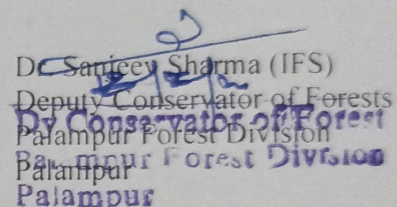 Dr Sanjeev Sharma (IFS)
Deputy Conservator of Forests
Dy Conservator of Forest
Palampur Forest Division
Palampur Forest Division
Palampur
Palampur